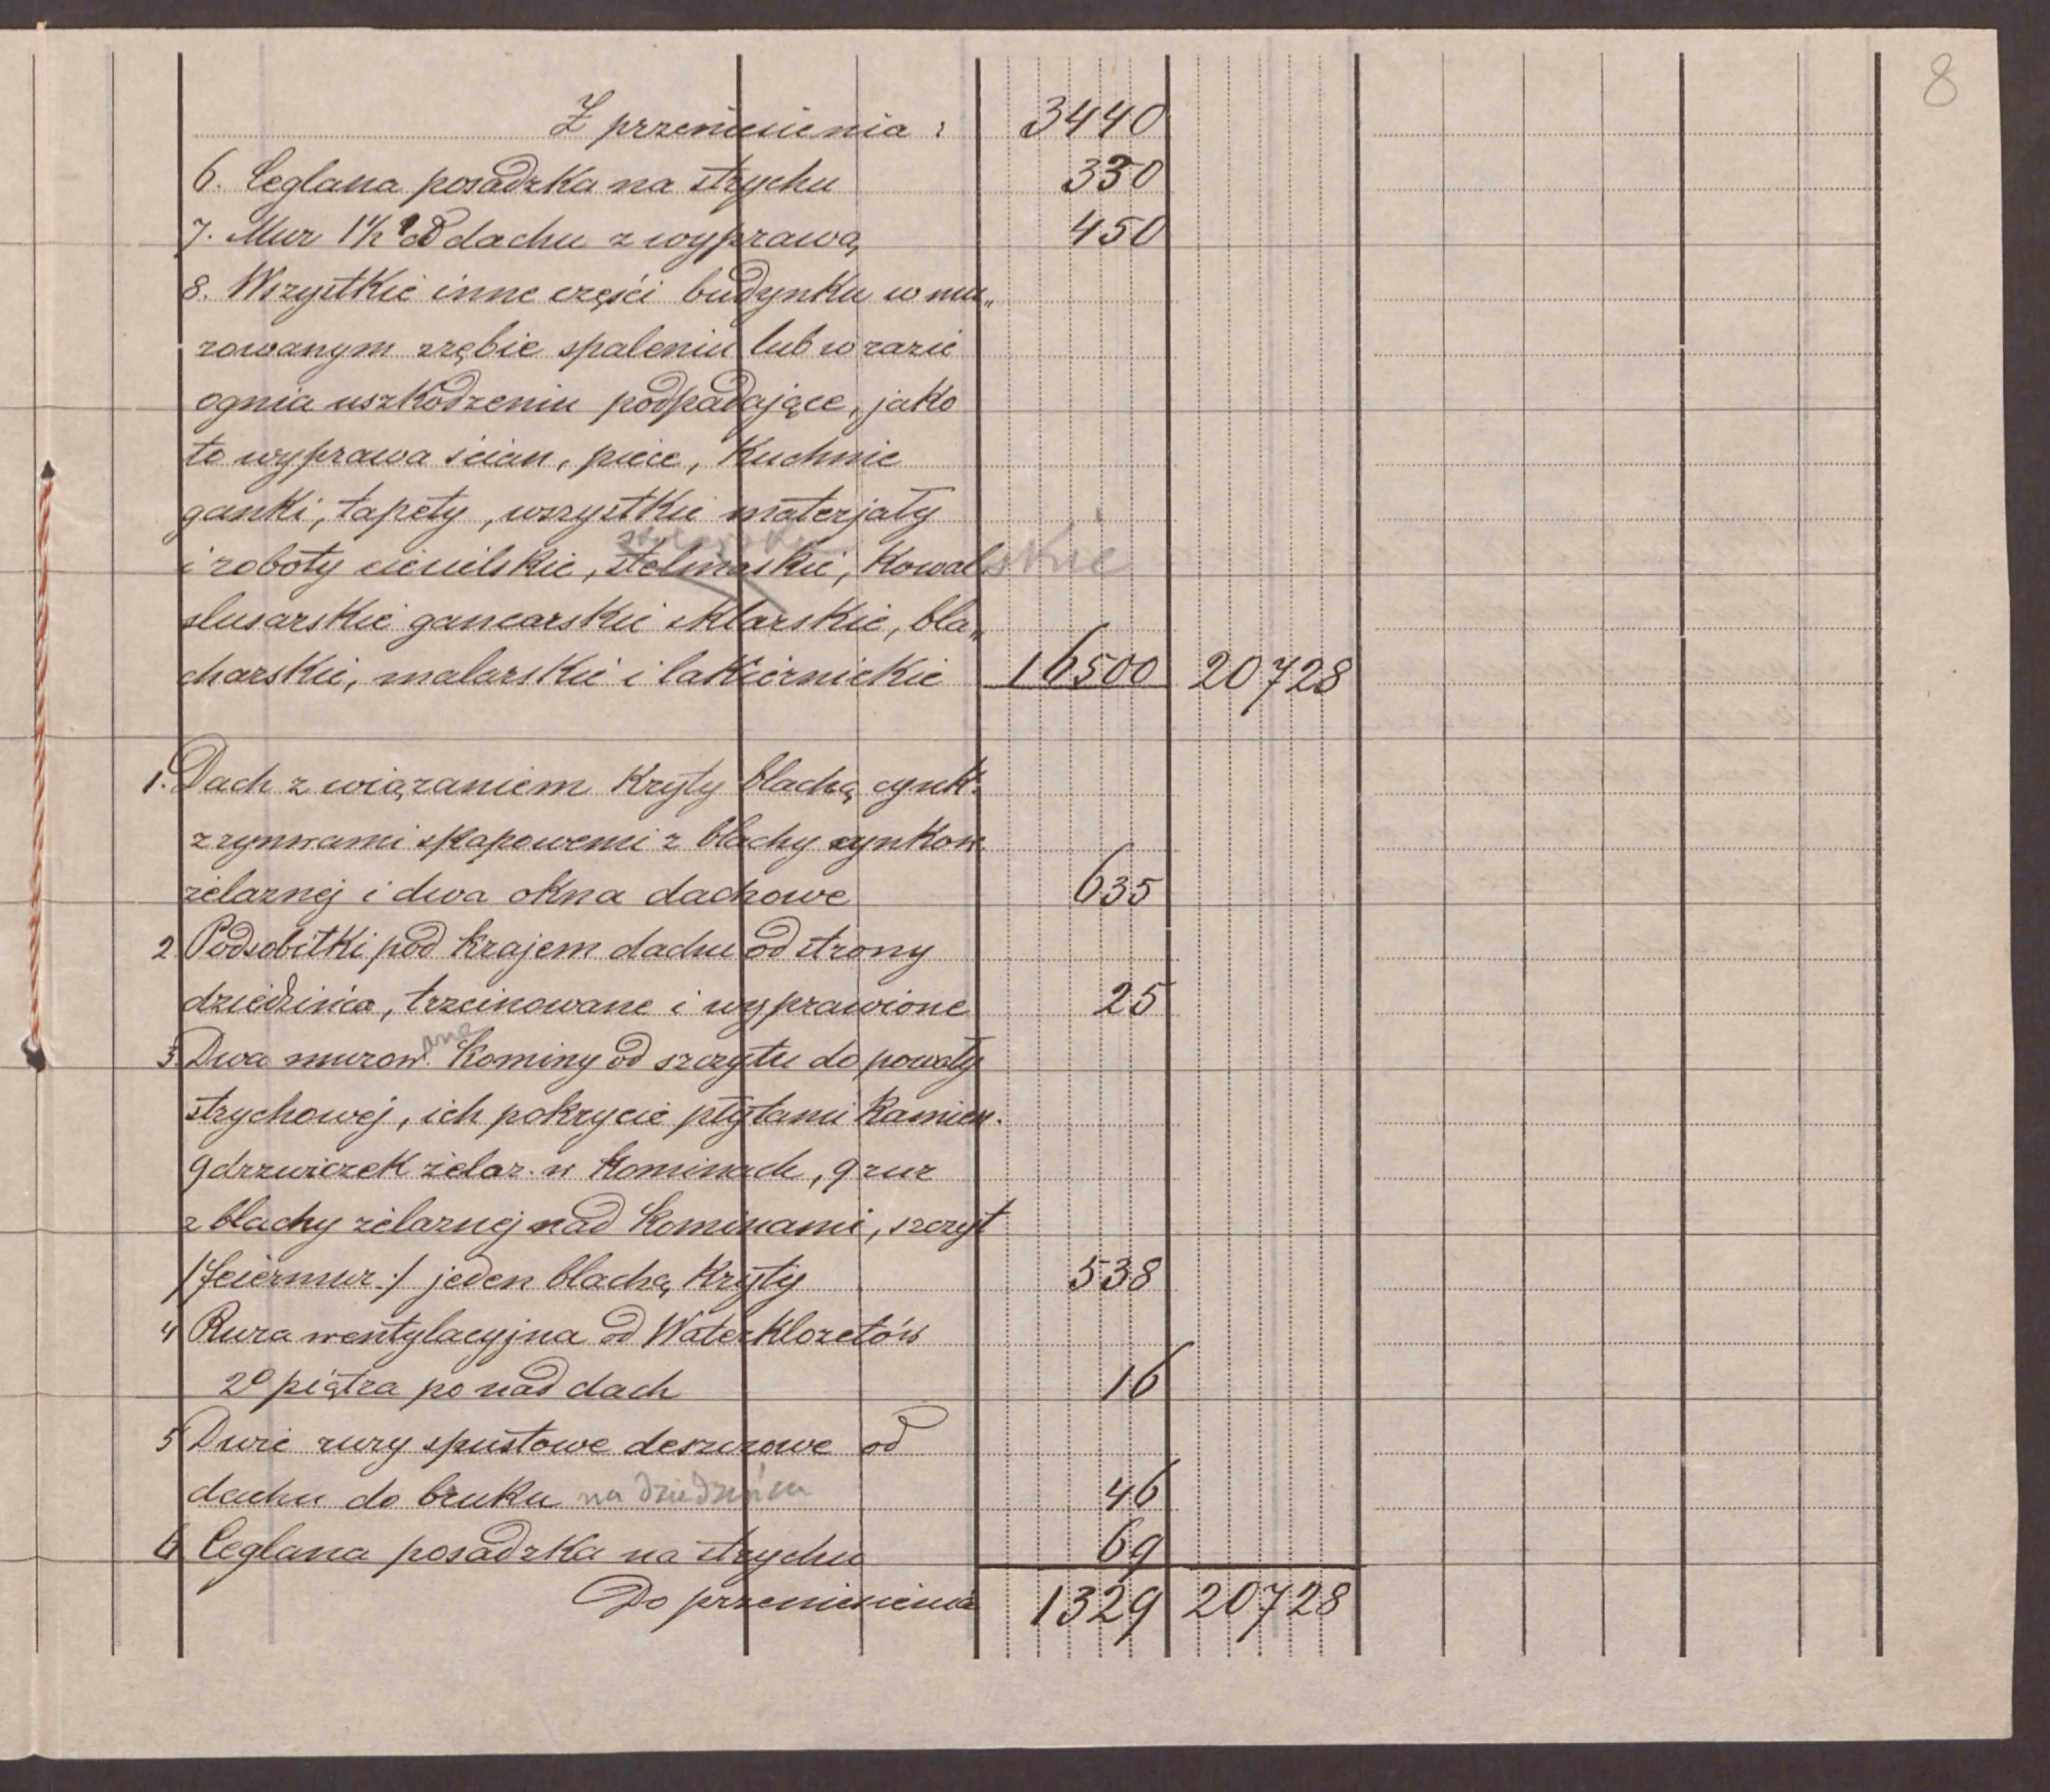 8
Z przeniesienia: 3440
6. Ceglana posadzka na strychu 330
7. Mur 1½ od dachu z wyprawą 450
8. Wszystkie inne części budynku w mu„
rowanym zrębie spaleniu lub w razie
ognia uszkodzeniu podpadające, jako
to wyprawa ścian, piece, Kuchnie
ganki, tapety, wszystkie materjały
i roboty ciesielskie, stolmaskie, Kowalskie
slusarskie gancarskie sklarskie, bla„
charskie, malarskie i lakiernickie 16500 20728
1. Dach z wiązaniem Kryty blachą cynk.
z rynwami skapowemi z blachy cynkow.
żelaznej i dwa okna dachowe 635
2 Podsobitki pod krajem dachu od strony
dziedzińca, trzcinowane i wyprawione 25
3. Dwa murow.ane Kominy od szczytu do powały
strychowej, ich pokrycie płytami Kamien.
9 drzwiczek żelaz. w Kominach, 9 rur
z blachy żelaznej nad Kominami, szczyt
/feiermur:/ jeden blachą Kryty 538
4 Rura wentylacyjna od Waterklozetów
2º piętra po nad dach 16
5 Dwie rury spustowe deszczowe od
dachu do bruku na dziedzińcu 46
6 Ceglana posadzka na strychu 69
Do przeniesienia 1329 20728